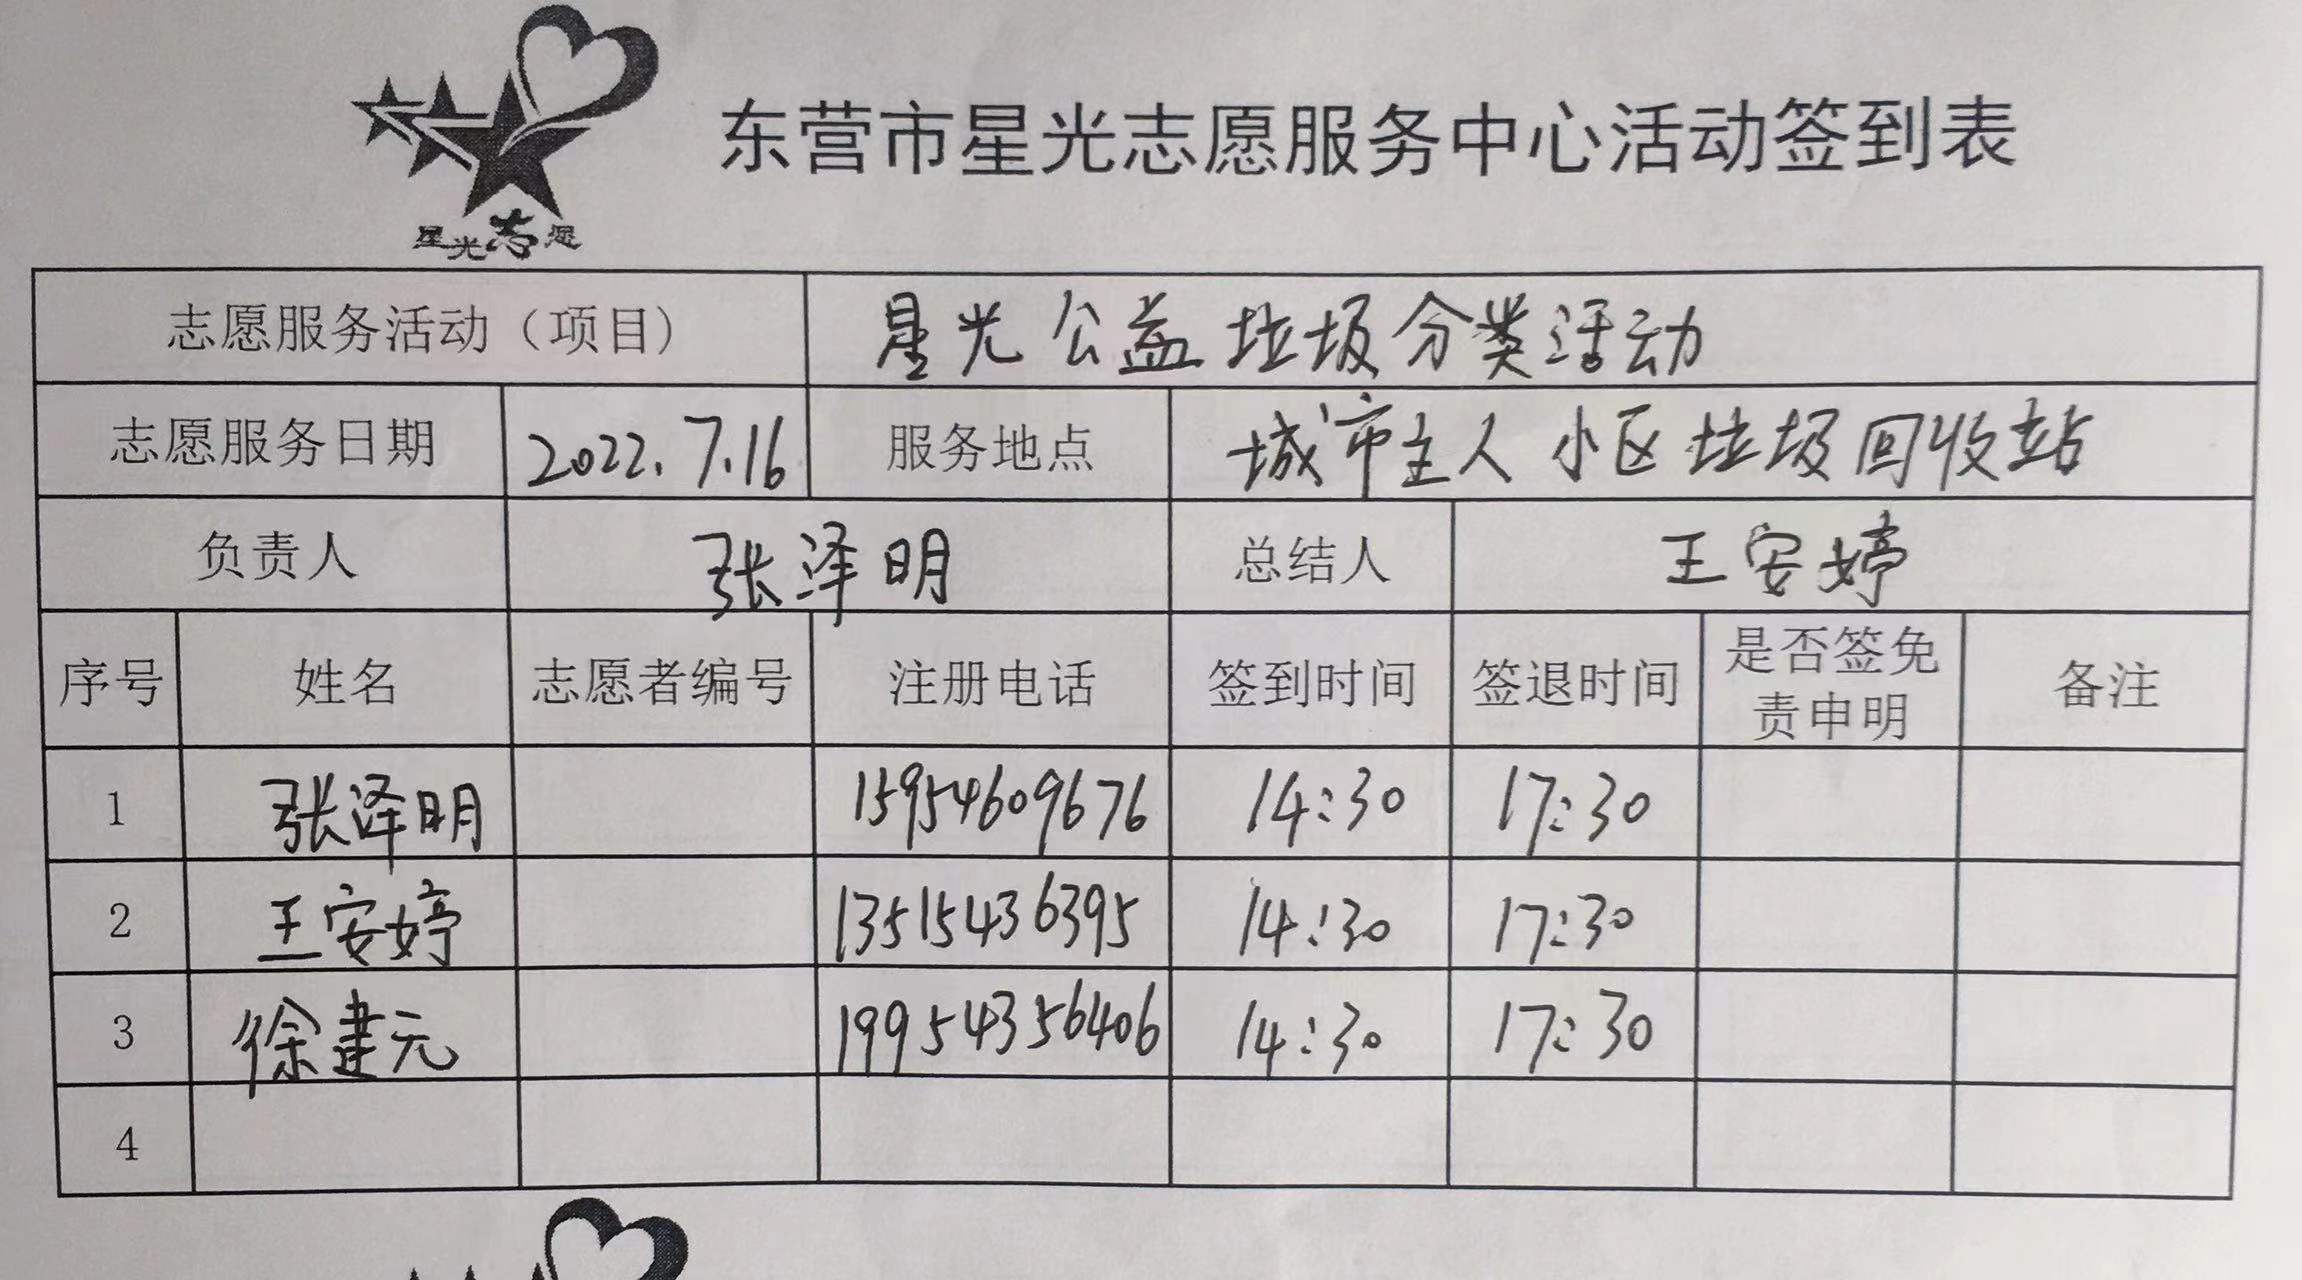 东营市星光志愿服务中心活动签到表
星光志愿
志愿服务活动（项目) 星光公益垃圾分类活动
志愿服务日期 2022.7.16 服务地点 城市主人小区垃圾回收站
负责人 张泽明 总结人 王安婷
序号 姓名 志愿者编号 注册电话 签到时间 签退时间 是否签免责申明 备注
1 张泽明 15954609676 14:30 17:30
2 王安婷 13515436395 14:30 17:30
3 徐建元 19954356406 14:30 17:30
4